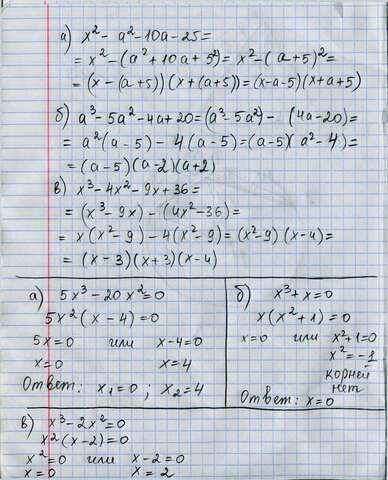 а) x² - a² - 10a - 25 =
= x² - (a² + 10a + 5²) = x² - (a + 5)² =
= (x - (a + 5)) (x + (a + 5)) = (x - a - 5)(x + a + 5)
б) a³ - 5a² - 4a + 20 = (a³ - 5a²) - (4a - 20) =
= a² (a - 5) - 4 (a - 5) = (a - 5)( a² - 4) =
= (a - 5)(a - 2)(a + 2)
в) x³ - 4x² - 9x + 36 =
= (x³ - 9x) - (4x² - 36) =
= x (x² - 9) - 4(x² - 9) = (x² - 9) (x - 4) =
= (x - 3)(x + 3)(x - 4)
а) 5x³ - 20x² = 0
5x² (x - 4) = 0
5x = 0 или x - 4 = 0
x = 0 x = 4
Ответ: x₁ = 0 ; x₂ = 4
б) x³ + x = 0
x (x² + 1) = 0
x = 0 или x² + 1 = 0
x² = -1
корней
нет
Ответ: x = 0
в) x³ - 2x² = 0
x² (x - 2) = 0
x² = 0 или x - 2 = 0
x = 0 x = 2